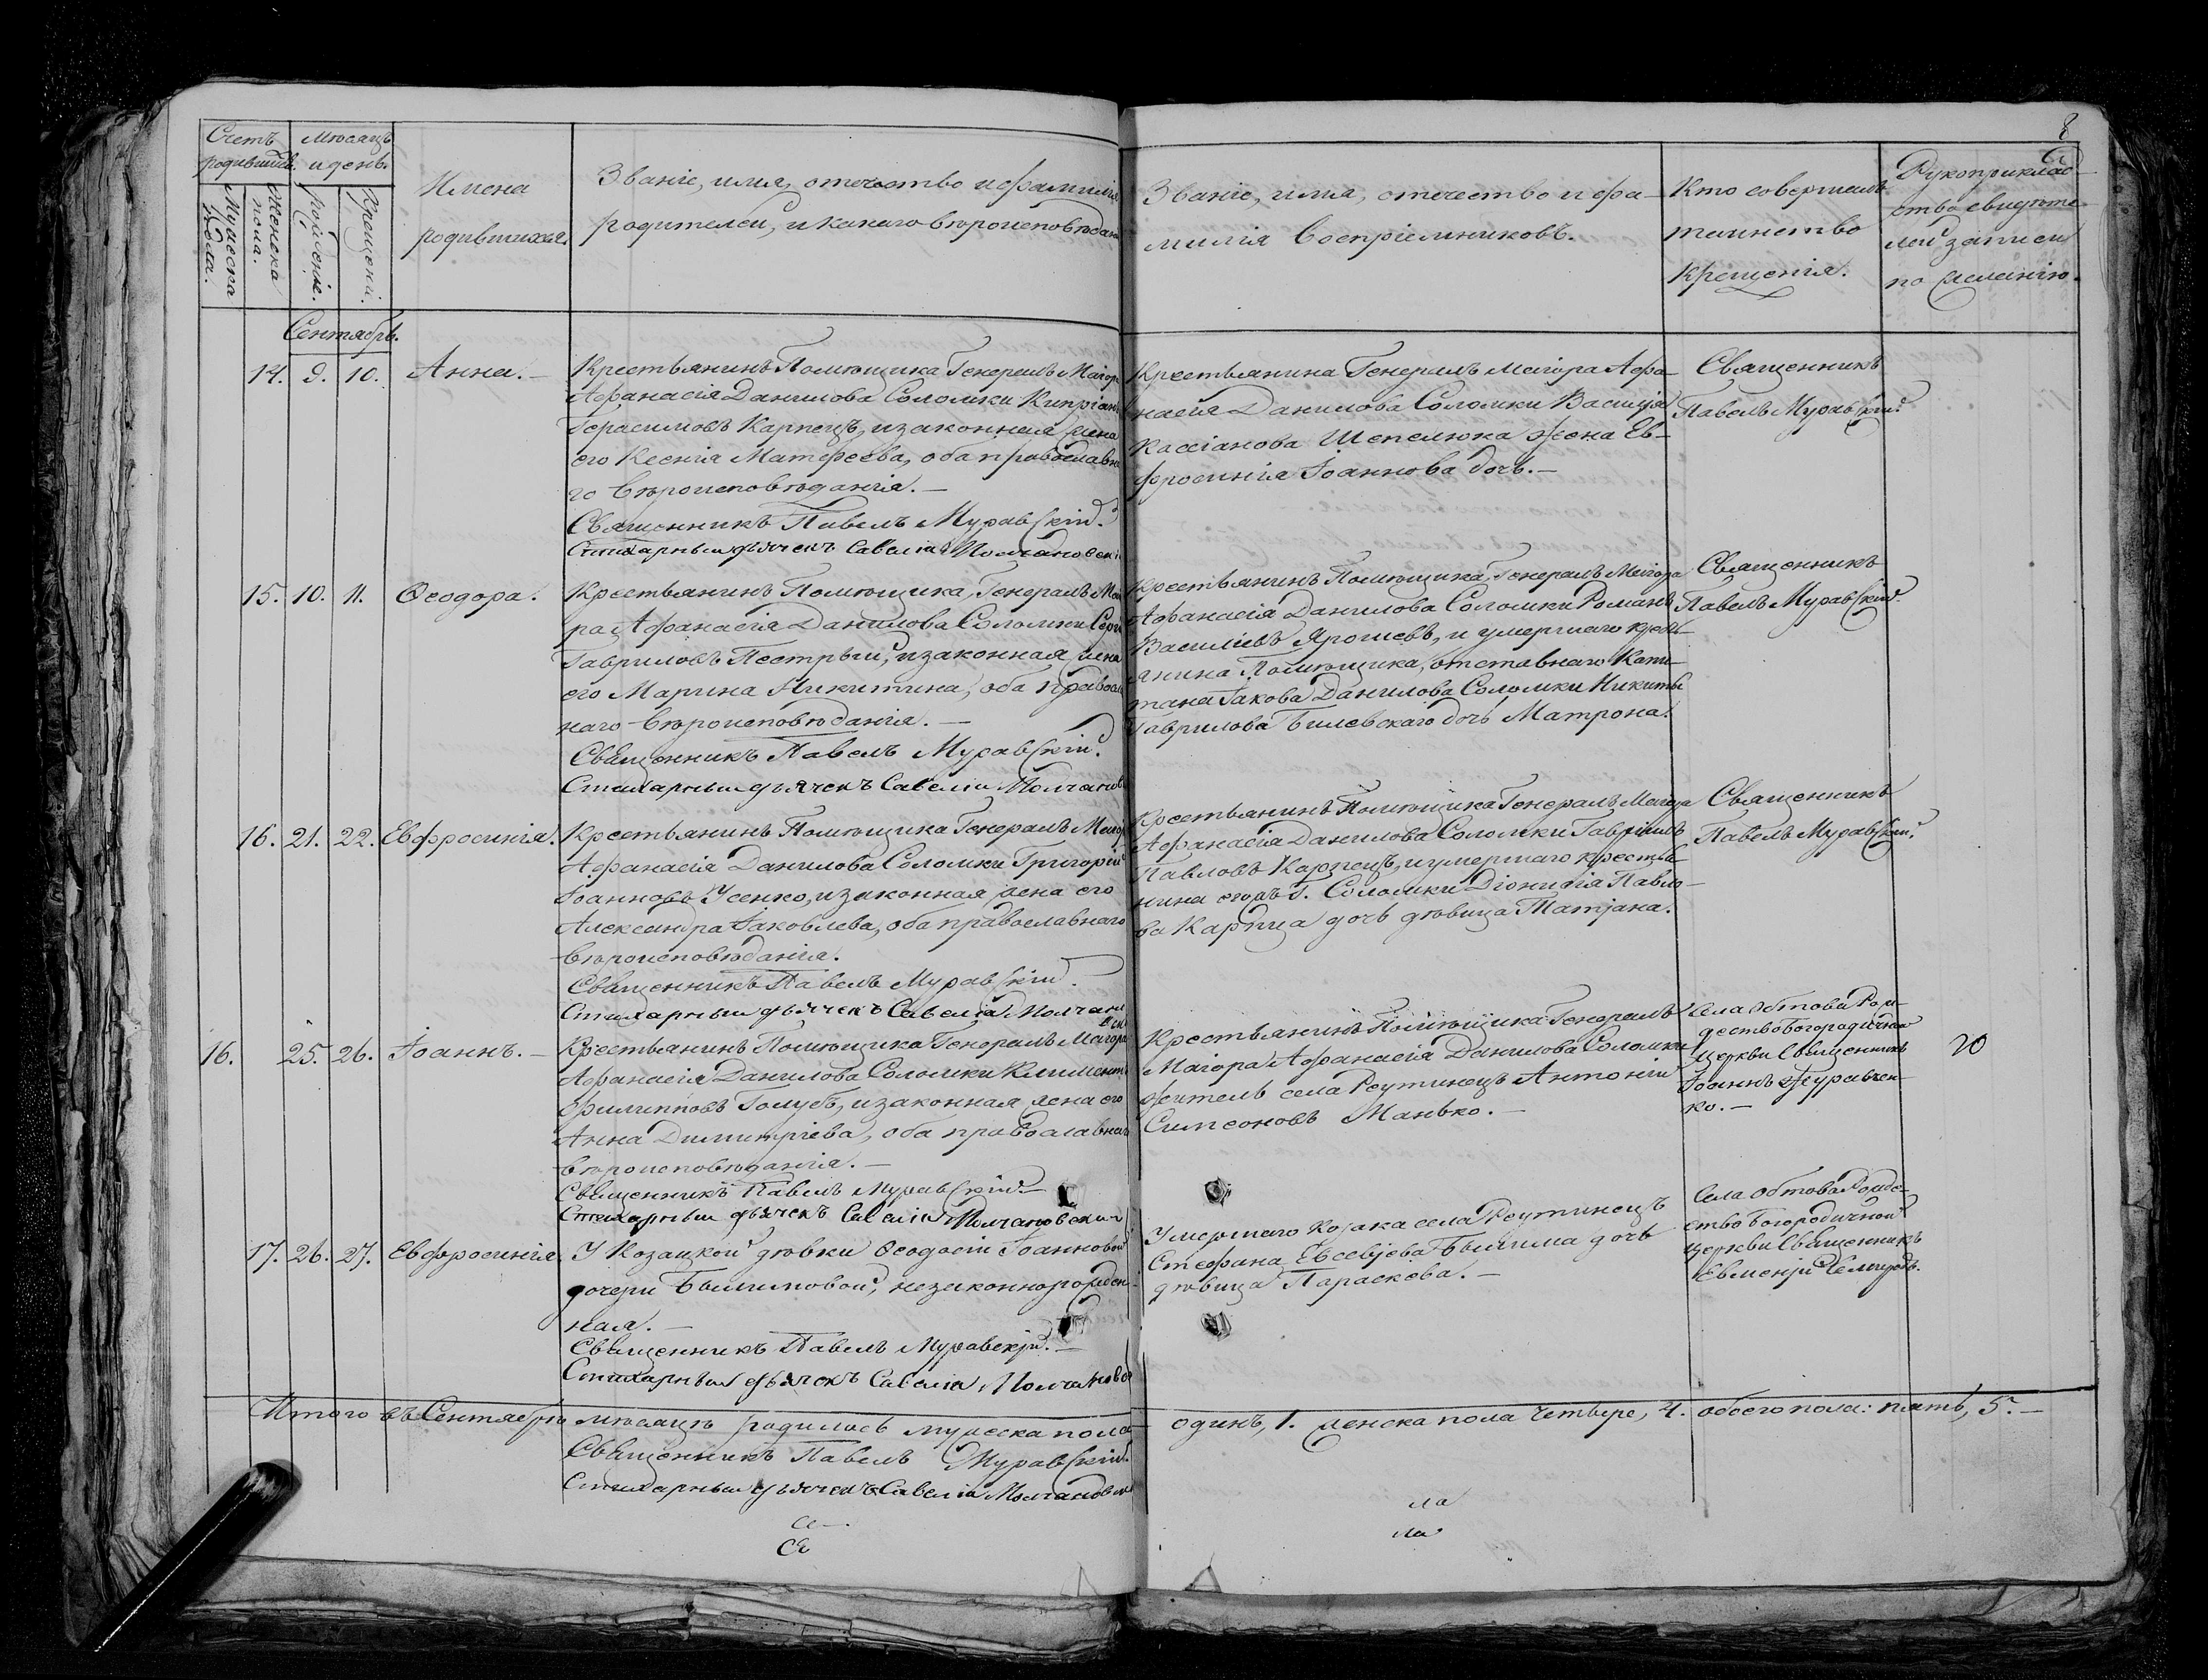 8
Счетъ родившихъ.
Мѣсяцъ и день.
Мужеска пола.
Женска пола.
рожденіе.
Крещенія.
Имена
родившихся.
Званіе, имя, отечество и фамилія
родителей, и какаго вѣроисповѣданія
Званіе, имя, отечество и фа-
милія Воспріемниковъ.
Кто совершалъ
таинство
Крещенія.
Рукоприклад-
ство свидѣте-
лей записи
по желанію.
Сентябрь.
14. 9. 10. Анна. —
Крестьянинъ Помѣщика Генералъ Маіора
Афанасія Данилова Соломки Кипріанъ
Герасимовъ Карпецъ, и законная жена
его Ксенія Матфеева, оба православна
го вѣроисповѣданія. —
Священникъ Павелъ Муравскій.
Стихарный дьячекъ Савелій Молчановскій
Крестьянина Генералъ Маіора Афа-
насія Данилова Соломки Василія
Кассіанова Шепелюка жена Ев-
фросинія Іоаннова дочь. —
Священникъ
Павелъ Муравскій.
15. 10. 11. Ѳеодора.
Крестьянинъ Помѣщика, Генералъ Маіо
ра Афанасія Данилова Соломки
Гавриловъ Пестрый, и законная жена
его Марина Никитина, оба правосла
наго вѣроисповѣданія. —
Священникъ Павелъ Муравскій.
Стихарный дьячекъ Савелій Молчанов
Крестьянинъ Помѣщика, Генералъ Маіора
Афанасія Данилова Соломки Романъ
Василіевъ Ярошевъ, и умершаго кресть-
янина Помѣщика, отставнаго Капи-
тана Іакова Данилова Соломки Никиты
Гаврилова Билевскаго дочь Матрона.
Священникъ
Павелъ Муравскій.
16. 21. 22. Евфросинія.
Крестьянинъ Помѣщика Генералъ Маіора
Афанасія Данилова Соломки Григорій
Іоанновъ Усенко, и законная жена его
Александра Іаковлева, оба православнаго
вѣроисповѣданія.
Священникъ Павелъ Муравскій.
Стихарный дьячекъ Савелій Молчанов
Крестьянинъ Помѣщика Генералъ Маіора
Афанасія Данилова Соломки Гавріилъ
Павловъ Карпецъ, и умершаго крестья-
нина Г. Соломки Діонисія Павло-
ва Карпца дочь дѣвица Татіана.
Священникъ
Павелъ Муравскій.
16. 25. 26. Іоаннъ. —
Крестьянинъ Помѣщика Генералъ Маіора
Афанасія Данилова Соломки Климентъ
Филипповъ Голубъ, и законная жена его
Анна Димитріева, оба православнаго
вѣроисповѣданія. —
Священникъ Павелъ Муравскій. —
Стихарный дьячекъ Савелій Молчановскій
Крестьянинъ Помѣщика Генералъ
Маіора Афанасія Данилова Соломки
житель села Реутинецъ Антоній
Симеоновъ Манько. —
Села Обтова Рож-
дествобогородичной
Церкви Священникъ
Іоаннъ Журавчен-
ко. —
20
17. 26. 27. Евфросинія.
У Козацкой дѣвки Ѳеодосіи Іоанновой
дочери Былимовой, незаконнорожден-
ная. —
Священникъ Павелъ Муравскій. —
Стихарный дьячекъ Савелій Молчановс
Умершаго Козака села Реутинецъ
Стефана Евсевіева Былима дочь
дѣвица Параскева. —
Села Обтова Рожде-
ство Богородичной
Церкви Священникъ
Итого въ Сентябрѣ мѣсяцѣ родилось мужеска пола одинъ, 1. женска пола четверо, 4. обоего пола: пять, 5. —
Священникъ Павелъ Муравскій.
Стихарный дьячекъ Савелій Молчановс